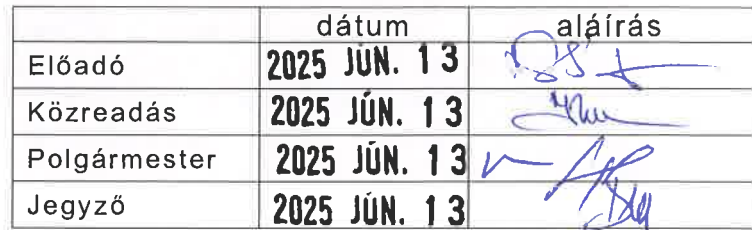 dátum aláírás
Előadó 2025 JÚN. 13
Közreadás 2025 JÚN. 13
Polgármester 2025 JÚN. 13
Jegyző 2025 JÚN. 13